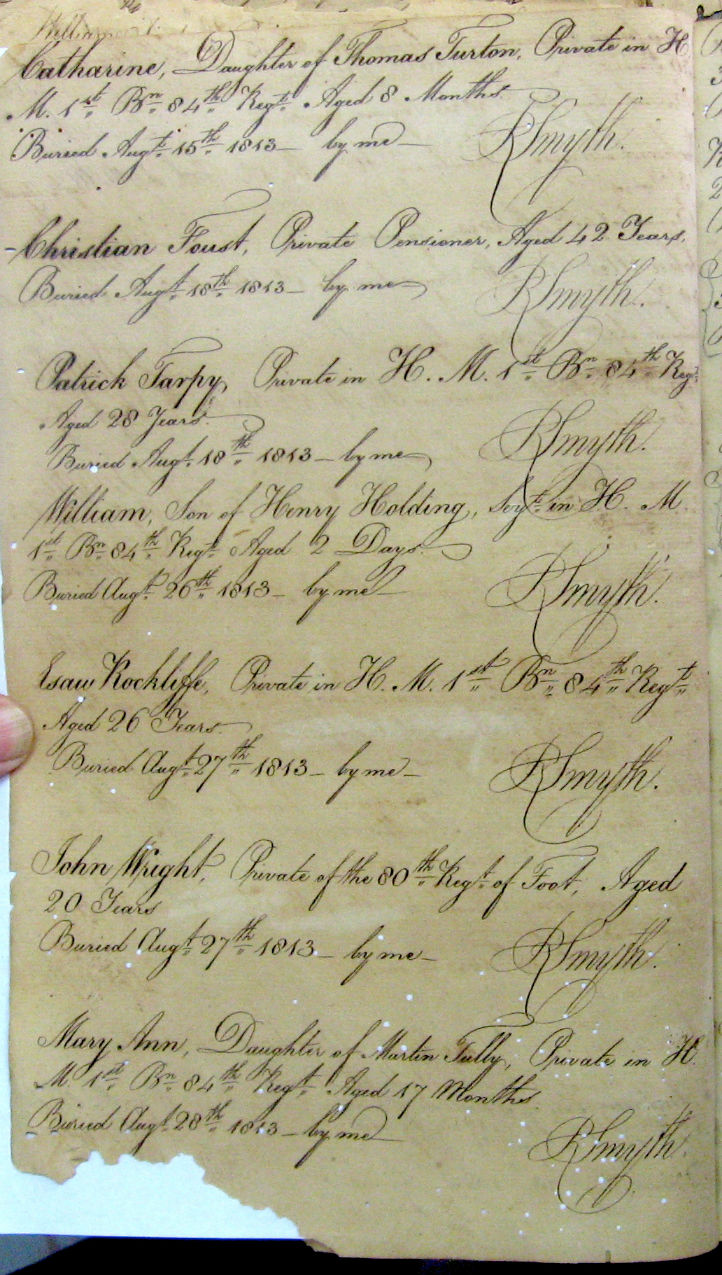 Catharine, Daughter of Thomas Turton, Private in H
M. 1st Bn 84th Regt Aged 8 Months
Buried Augt 15th 1813 – by me – RSmyth.
Christian Foust, Private Pensioner, Aged 42 Years,
Buried Augt 18th 1813 – by me RSmyth.
Patrick Tarpy, Private in H. M. 1st Bn 84th Regt
Aged 28 Years.
Buried Augt 18th 1813 – by me RSmyth.
William, Son of Henry Holding, Serjt in H. M.
1st Bn 84th Regt Aged 2 Days.
Buried Augt 26th 1813 – by me – RSmyth.
Esau Rockliffe, Private in H. M. 1st Bn 84th Regt
Aged 26 Years.
Buried Augt 27th 1813 – by me – RSmyth.
John Wright, Private of the 80th Regt of Foot, Aged
20 Years
Buried Augt 27th 1813 – by me – RSmyth.
Mary Ann, Daughter of Martin Tully, Private in H.
M 1st Bn 84th Regt Aged 17 Months
Buried Augt 28th 1813 – by me RSmyth.